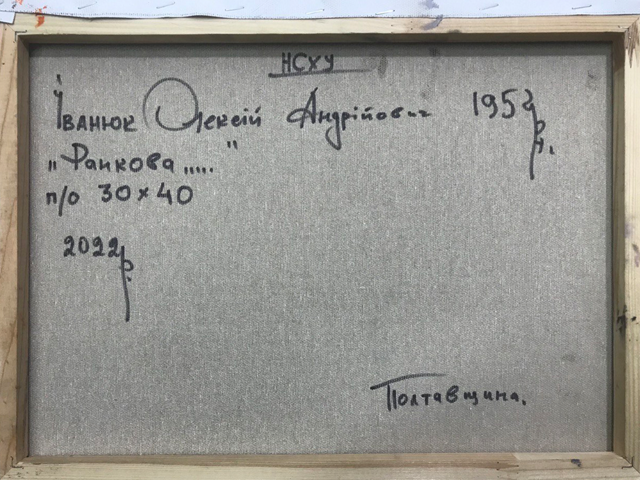 НСХУ
Іванюк Олексій Андрійович 1952 р.н.
„Ранкова....."
п/о 30×40
2022р.
Полтавщина.